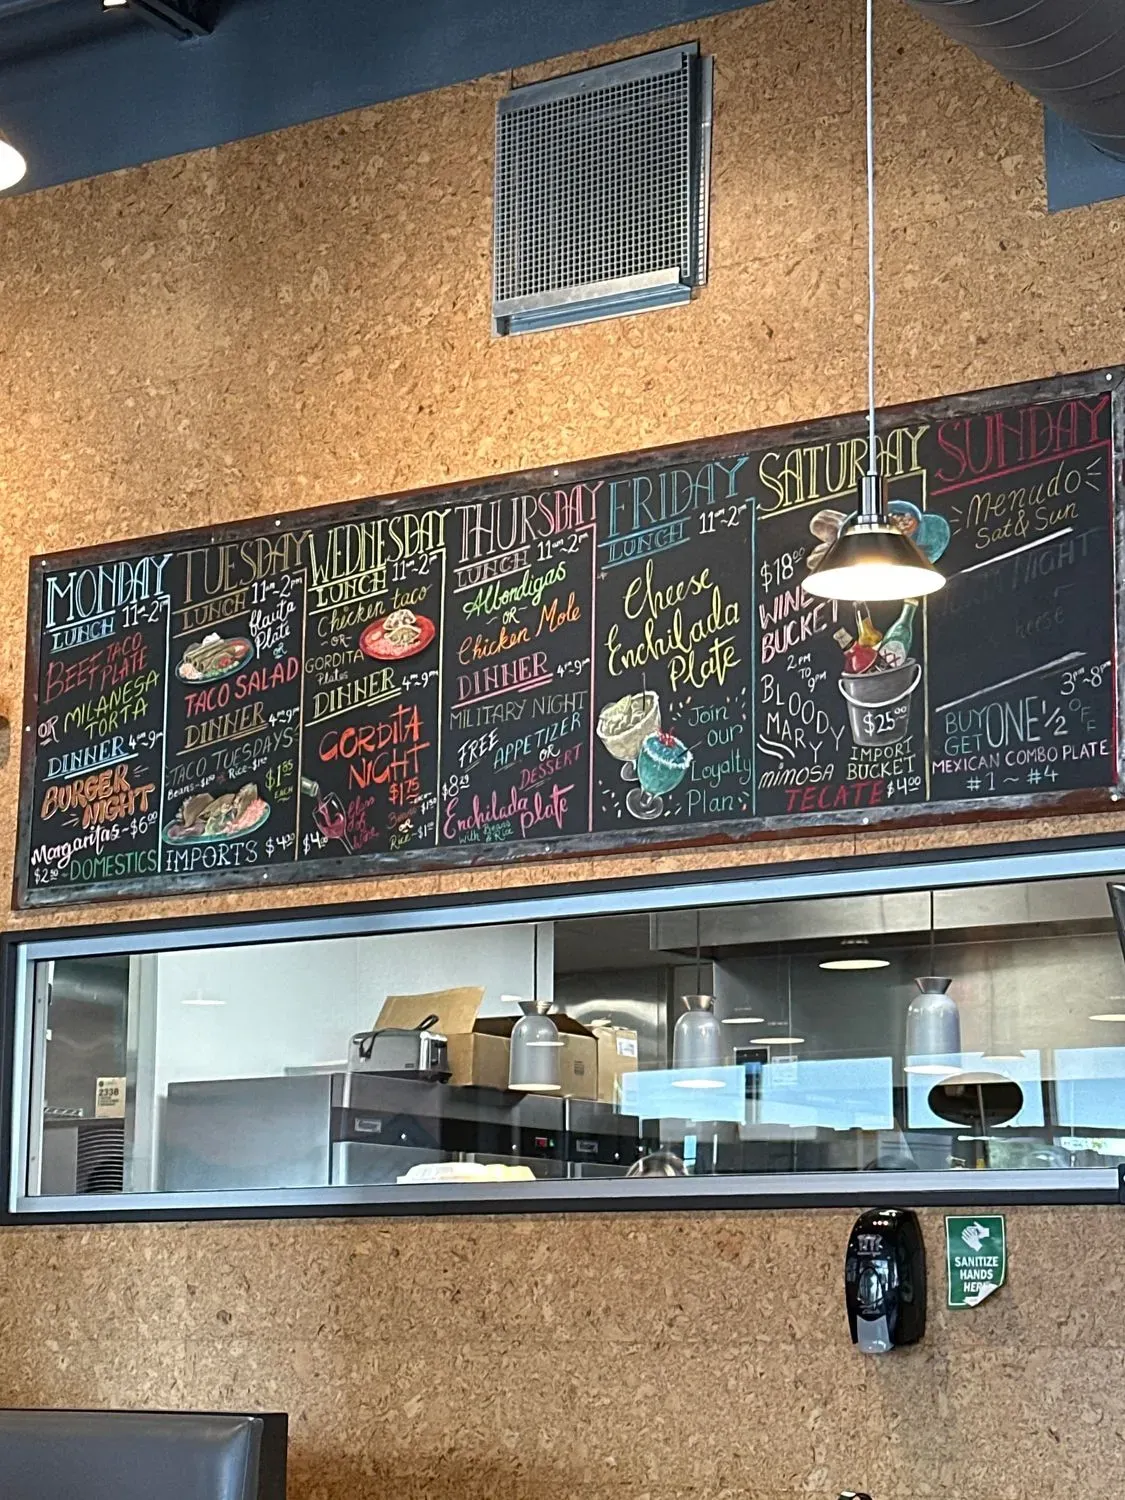 MONDAY
LUNCH 11am-2pm
BEEF TACO
PLATE
OR MILANESA
TORTA
DINNER 4pm-9pm
BURGER
NIGHT
Margaritas-$6.00
$2.50-DOMESTICS
TUESDAY
LUNCH 11am-2pm
flauta
Plate
or
TACO SALAD
DINNER 4pm-9pm
TACO TUESDAYS
Beans-$1.50 Rice-$1.50
$1.85
EACH
IMPORTS $4.50
WEDNESDAY
LUNCH 11am-2pm
Chicken taco
-OR-
GORDITA
Plates
DINNER 4pm-9pm
GORDITA
NIGHT
$1.75
Glass
of
Wine
$4.00
OR
Rice-$1.50
THURSDAY
LUNCH 11am-2pm
Albondigas
-OR-
Chicken Mole
DINNER 4pm-9pm
MILITARY NIGHT
FREE APPETIZER
OR
DESSERT
$8.29
Enchilada plate
with Beans
& Rice
FRIDAY
LUNCH 11am-2pm
Cheese
Enchilada
Plate
Join
our
Loyalty
Plan
SATURDAY
$18.00
WINE
BUCKET
2PM
TO
9PM
BLOODY
MARY
MIMOSA
$25.00
IMPORT
BUCKET
TECATE $4.00
SUNDAY
Menudo
Sat & Sun
3pm-8pm
BUY ONE
GET 1/2 OFF
MEXICAN COMBO PLATE
#1 ~ #4
2338
SANITIZE
HANDS
HERE